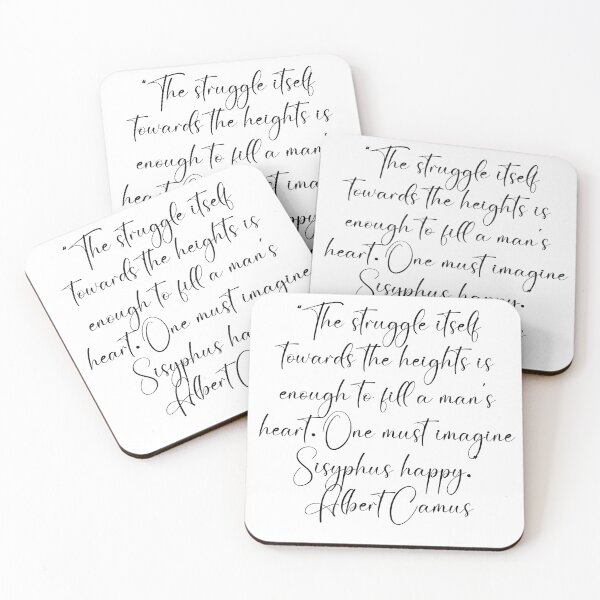 "The struggle itself
towards the heights is
enough to fill a man's
heart. One must ima
"The struggle itself
towards the heights is
enough to fill a man's
heart. One must imagine
Sisyphus happy.
"The struggle itself
towards the heights is
enough to fill a man's
heart. One must imagine
Sisyphus ha
Albert C
"The struggle itself
towards the heights is
enough to fill a man's
heart. One must imagine
Sisyphus happy."
Albert Camus